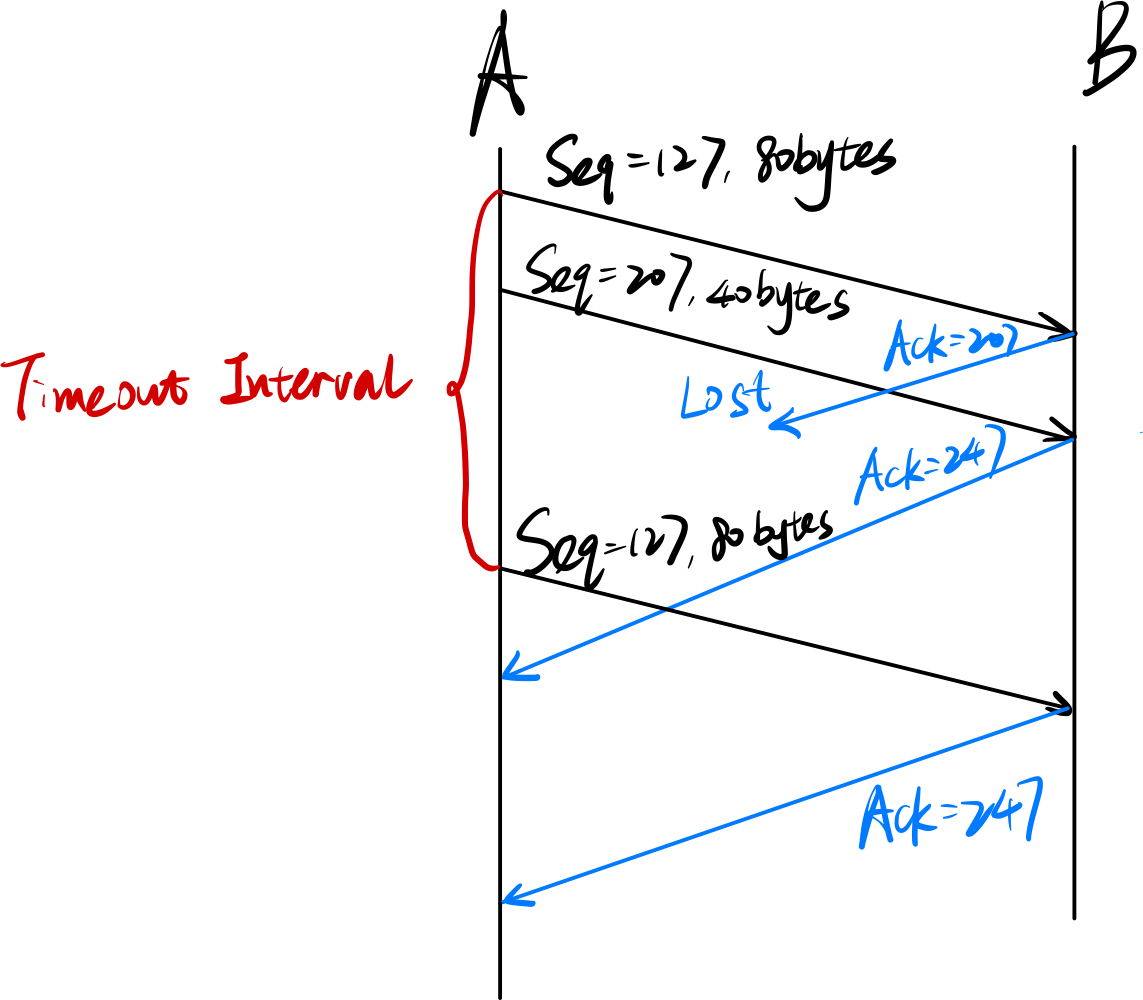 A
B
Seq=127, 80bytes
Seq=207, 40bytes
Ack=207
Timeout Interval
Lost
Ack=247
Seq=127, 80bytes
Ack=247